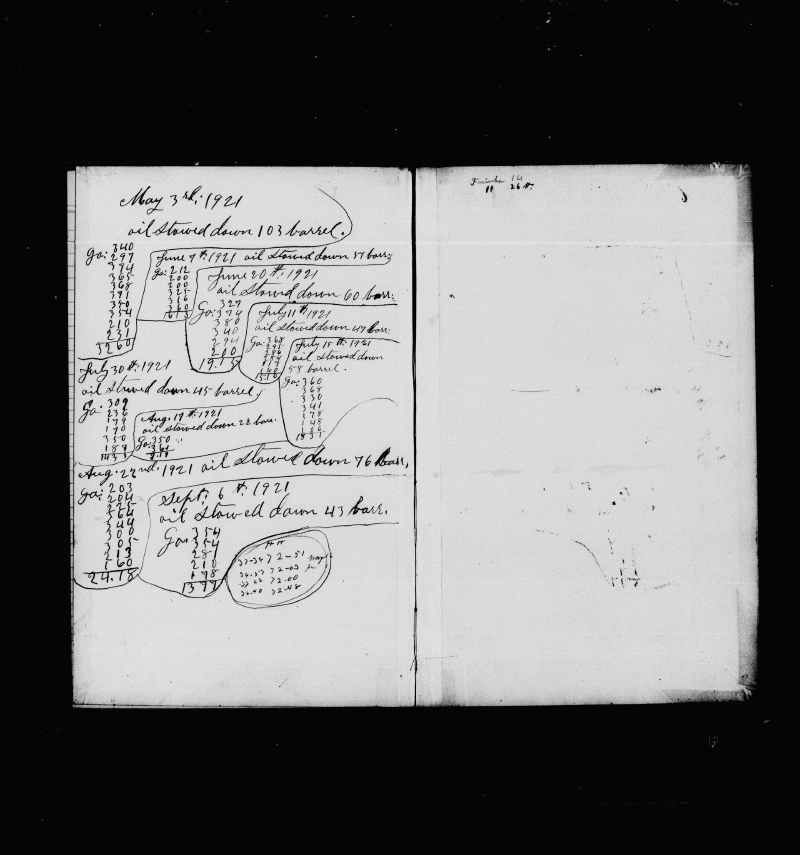 May 3rd, 1921
oil stowed down 103 barrel.
Ga: 340
297
394
365
368
391
350
354
210
231
3260
June 9th 1921 oil stowed down 51 barr:
Ga: 212
200
200
325
316
360
1613
June 20th, 1921
oil Stowed down 60 barr:
Ga: 327
374
380
340
294
200
19.15
July 11th 1921
oil stowed down 47 barr:
Ga: 368
160
July 18th 1921
oil stowed down
58 barrel.
Ga: 360
368
330
341
178
148
July 30th, 1921
oil stowed down 45 barrel,
Ga: 309
236
179
170
350
187
1431
Aug. 17th, 1921
oil stowed down 22 barr.
Ga: 350
Aug. 22nd, 1921 oil stowed down 76 barr,
Ga: 203
204
225
364
344
300
305
213
160
24.18
Sept. 6th, 1921
oil stowed down 43 barr.
Ga: 354
354
281
210
178
1377
72-51
72-03
72.00